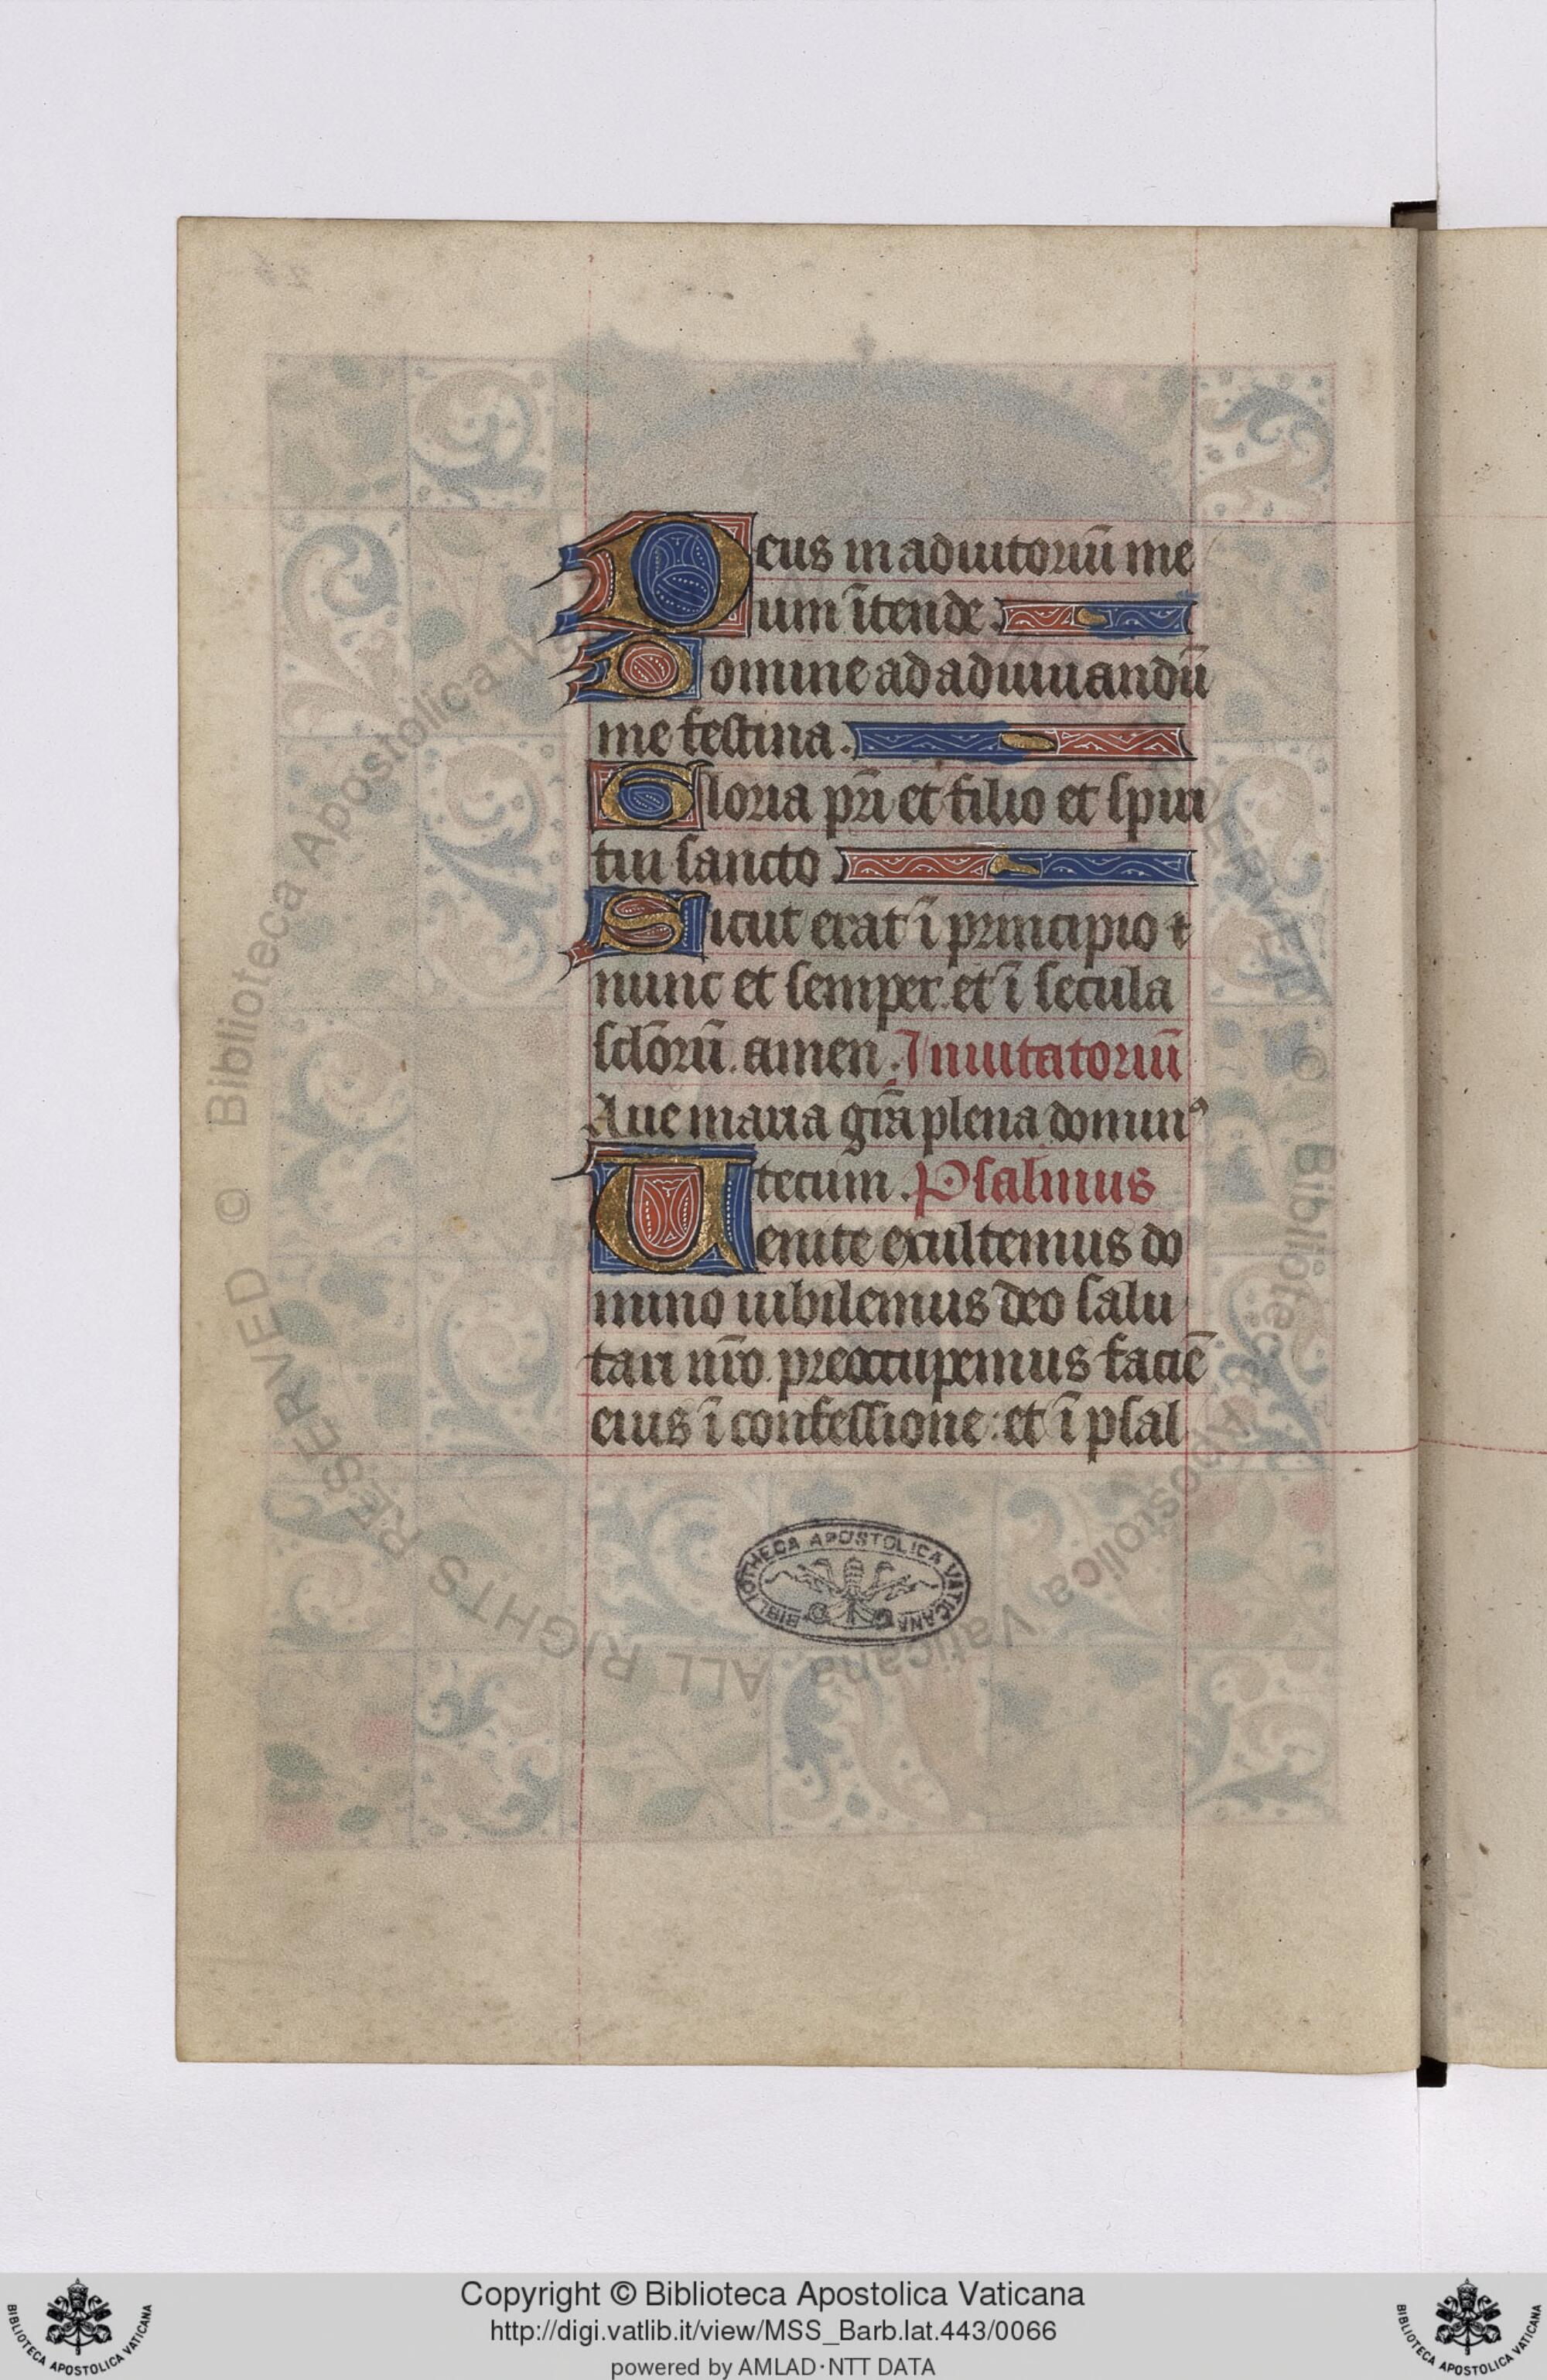 Deus in adiutoriū me
um ītende.
Domine ad adiuuandū
me festina.
Gloria pr̄i et filio et spiri
tui sancto
Sicut erat ī principio ⁊
nunc et semper. et ī secula
sclōrū. amen. Inuitatoriū
Aue maria grā plena dominꝰ
tecum. Psalmus
Uenite exultemus do
mino iubilemus deo salu
tari nr̄o. preoccupemus faciē
eius ī confessione: et ī psal
BIBLIOTHECA APOSTOLICA VATICANA
© Biblioteca Apostolica Vaticana
ALL RIGHTS RESERVED
© Biblioteca Apostolica Vaticana
Copyright © Biblioteca Apostolica Vaticana
http://digi.vatlib.it/view/MSS_Barb.lat.443/0066
powered by AMLAD·NTT DATA
BIBLIOTECA APOSTOLICA VATICANA
BIBLIOTECA APOSTOLICA VATICANA